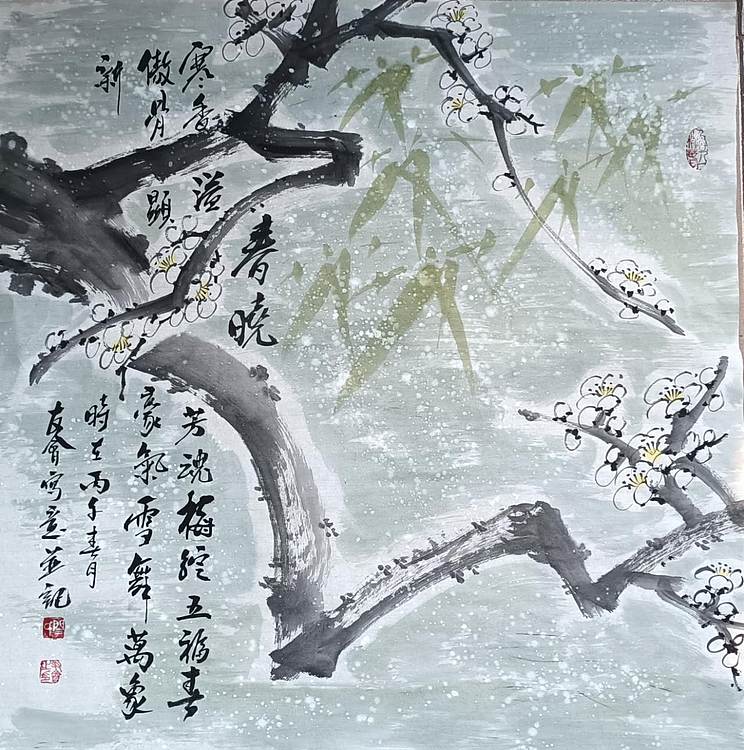 春曉
寒香溢芳魂梅綻五福春
傲骨顯豪氣雪舞萬象
新
時在丙午春月
寫意並記